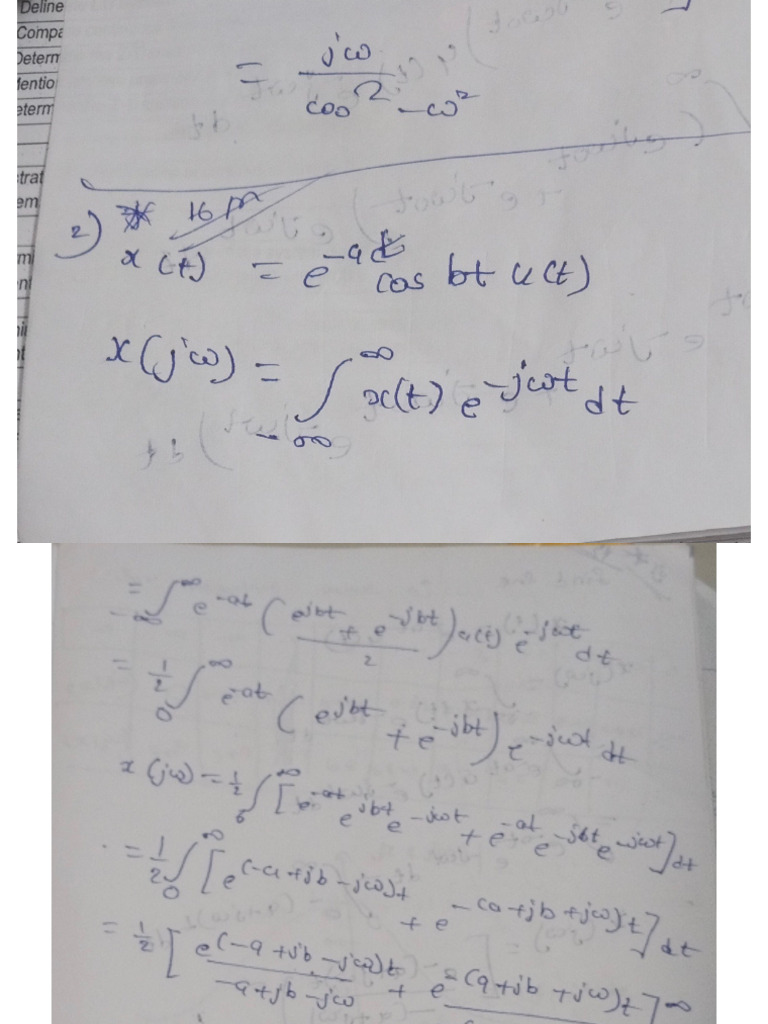 Deline
Compa
Determ
Mentio
eterm
= jω / cos² - ω²
strat
em
2) 16 m
x(t) = e^-at cos bt u(t)
x(jω) = ∫_-∞^∞ x(t) e^-jωt dt
= ∫_-∞^∞ e^-at (e^jbt + e^-jbt / 2) u(t) e^-jωt dt
= 1/2 ∫_0^∞ e^-at (e^jbt + e^-jbt) e^-jωt dt
x(jω) = 1/2 ∫_0^∞ [e^-at e^jbt e^-jωt + e^-at e^-jbt e^-jωt] dt
= 1/2 ∫_0^∞ [e^(-a+jb-jω)t + e^-(a+jb+jω)t] dt
= 1/2 [e^(-a+jb-jω)t / -a+jb-jω + e^-(a+jb+jω)t ]^∞